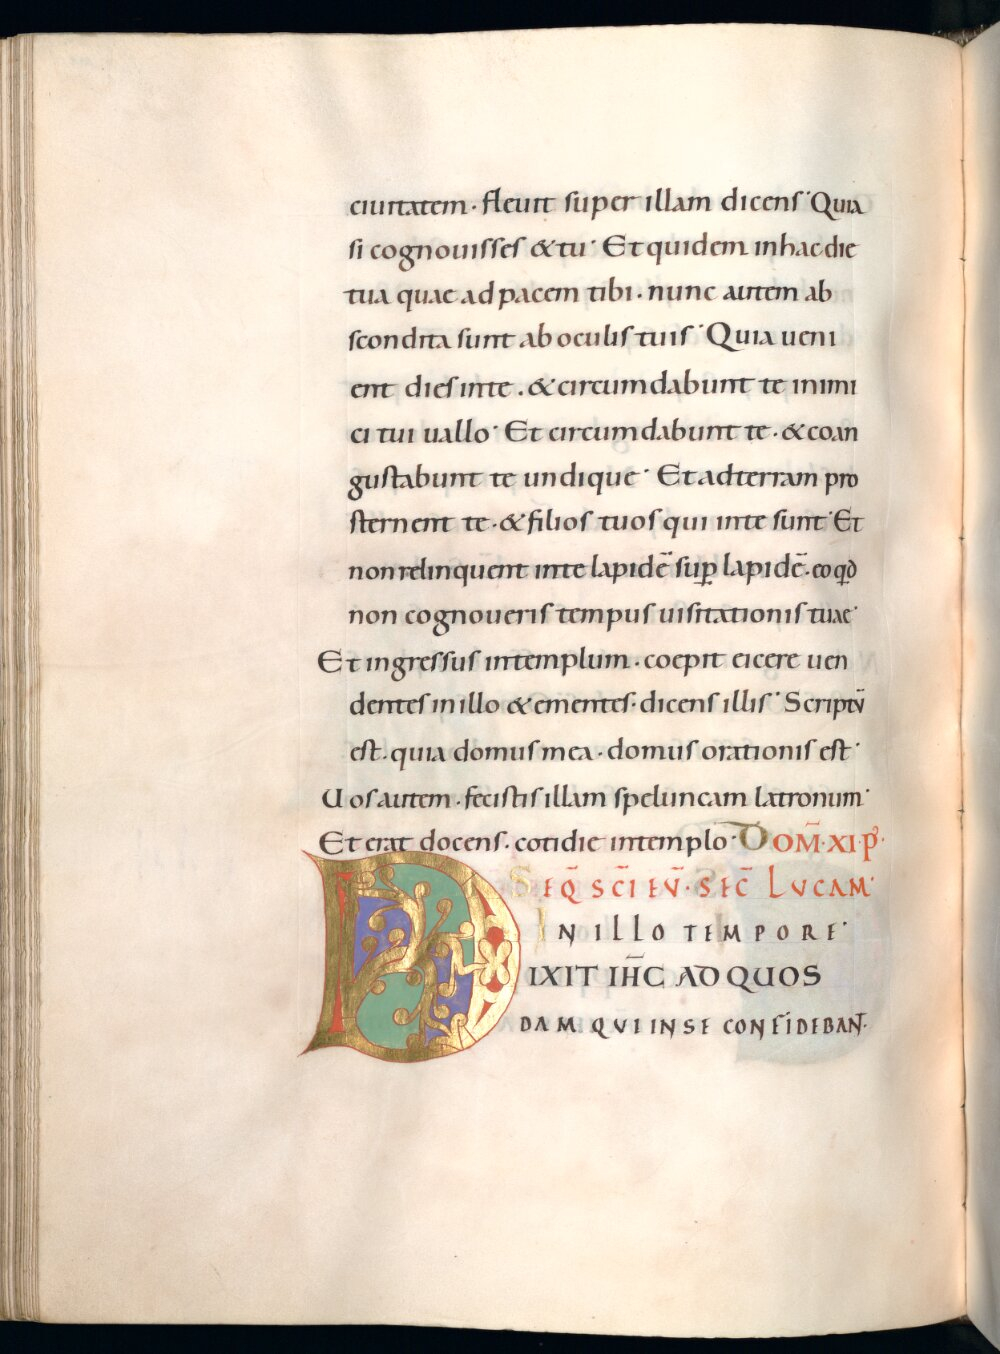 ciuitatem · fleuit super illam dicens · Quia
si cognouisses & tu · Et quidem in hac die
tua quae ad pacem tibi · nunc autem ab
scondita sunt ab oculis tuis · Quia ueni
ent dies in te . & circumdabunt te inimi
ci tui uallo · Et circumdabunt te · & coan
gustabunt te undique · Et ad terram pro
sternent te · & filios tuos qui in te sunt · Et
non relinquent in te lapidē suꝑ lapidē · eo qđ
non cognoueris tempus uisitationis tuae ·
Et ingressus in templum · coepit eicere uen
dentes in illo & ementes · dicens illis · Scriptū
est · quia domus mea · domus orationis est ·
Uos autem · fecistis illam speluncam latronum ·
Et erat docens · cotidie in templo · DOM̄ · XI · P̄ ·
SEQ̄ SC̄I EṼ · SEC̄ LVCAM ·
IN ILLO TEMPORE ·
DIXIT IH̄C AD QUOS
DAM QVI IN SE CONFIDEBANT ·